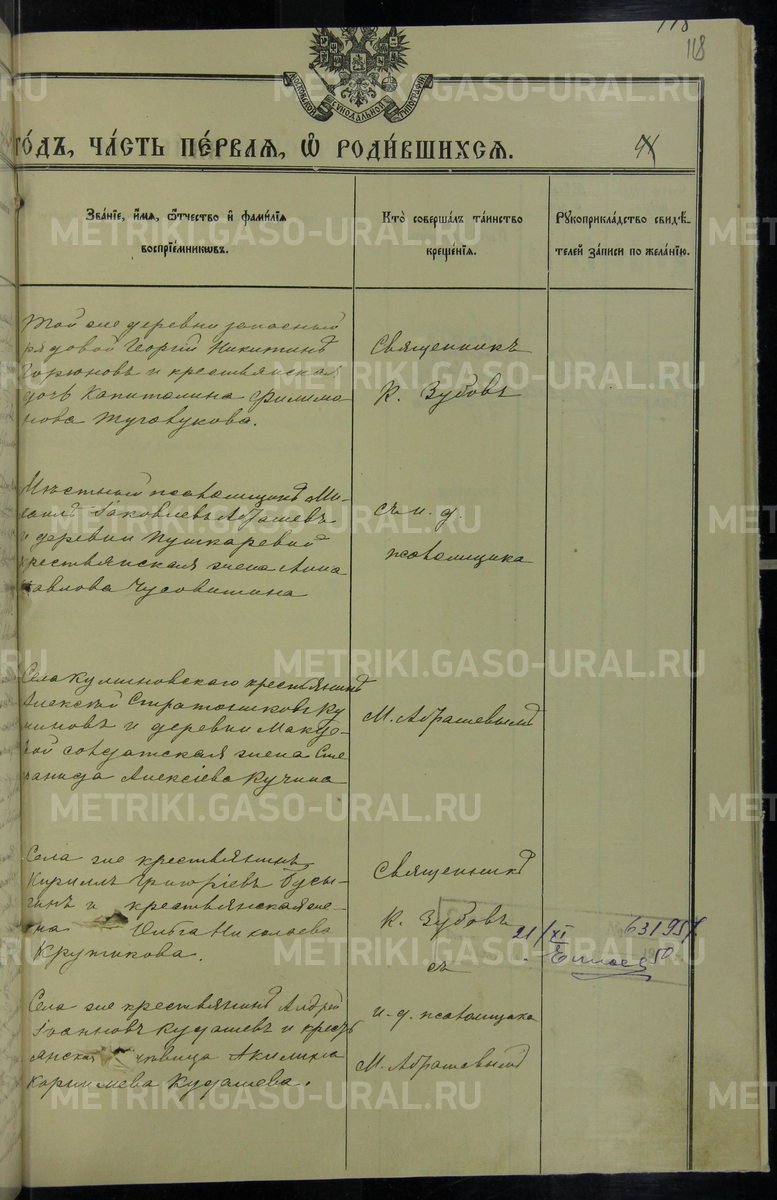 118
118
МОСКОВСКОЙ СѴНОДАЛЬНОЙ ТИПОГРАФІИ
ГО́ДЪ, ЧА́СТЬ ПЕ́РВАЯ, Ѡ҆ РОДИ́ВШИХСЯ.
Зва́нїе, и҆́мя, ѻ҆́тчество и҆ фами́лїя
воспрїе́мникѡвъ.
Кто̀ соверша́лъ та́инство
креще́нїя.
Рꙋкоприкла́дство свидѣ́-
телей за́писи по жела́нїю.
Той же деревни запасный
рядовой Георгій Никитинъ
Горюновъ и крестьянская
дочь Капитолина Филимо
нова
Священникъ
К. Зубовъ
Мѣстный псаломщикъ Ми-
хаилъ Іаковлевъ Абрашевъ
и деревни Пушкаревой
крестьянская жена Анна
Павлова Чусовитина
съ и. д.
псаломщика
Села крестьянинъ
Алексѣй
и деревни
солдатская жена Сте
Алексіева Кучина
М. Абрашевымъ
Села же крестьянинъ
Кирилъ Григоріевъ Бусы-
гинъ и крестьянская же-
на Ольга Николаева
Крутикова.
Священникъ
К. Зубовъ
съ
21/XI
631957
50
Села же крестьянинъ Андрей
Іоанновъ Кудашевъ и кресть
янска дѣвица Акилина
Корнилева Кудашева.
и. д. псаломщика
М. Абрашевымъ
METRIKI.GASO-URAL.RU